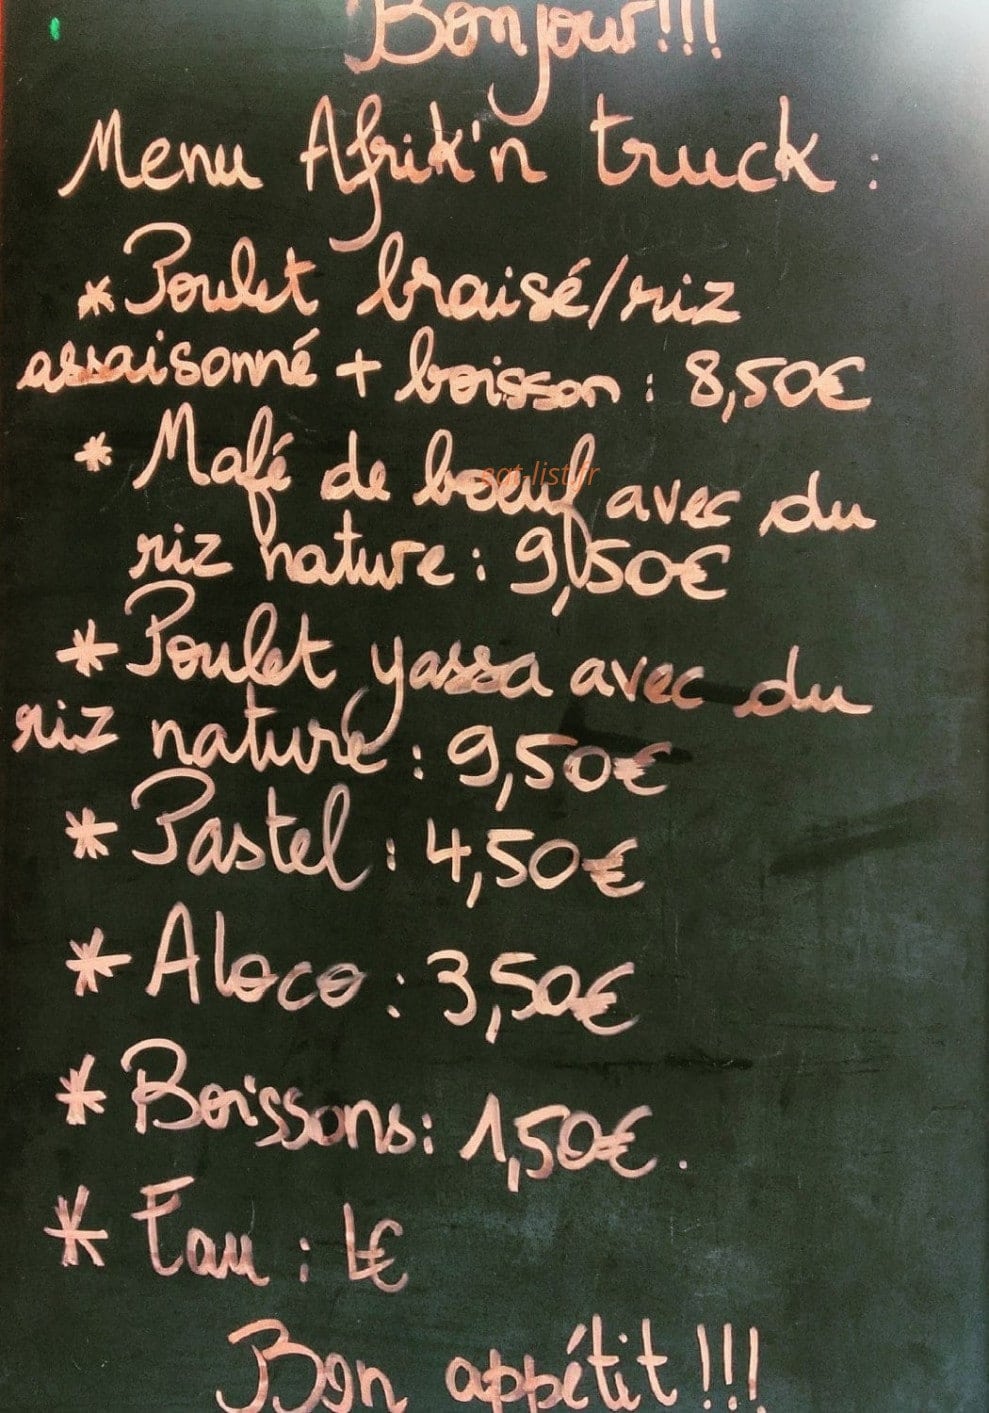 Bonjour!!!
Menu Afrik'n truck :
* Poulet braisé/riz
assaisonné + boisson : 8,50€
* Mafé de boeuf avec du
eat-list.fr
riz nature : 9,50€
* Poulet yassa avec du
riz nature : 9,50€
* Pastel : 4,50€
* Aloco : 3,50€
* Boissons : 1,50€.
* Eau : 1€
Bon appétit !!!